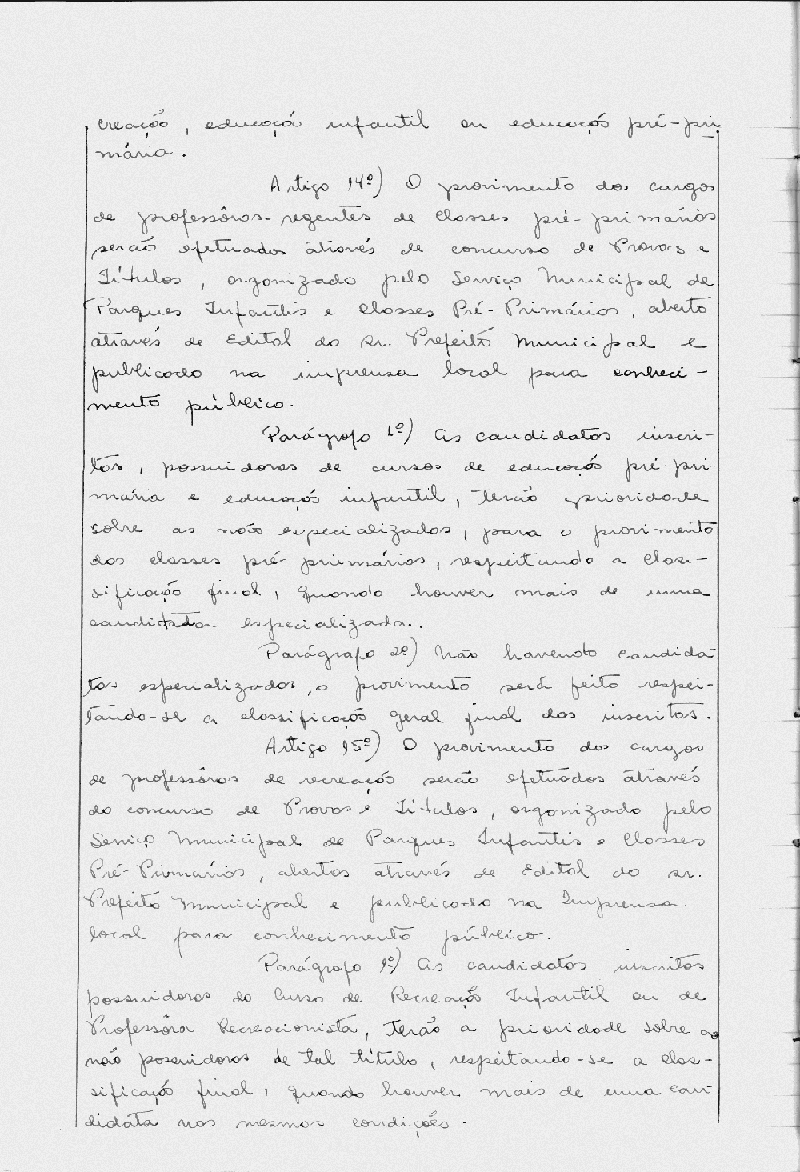 creação, educação infantil ou educação pré-pri
mária.
Artigo 14º) O provimento dos cargos
de professôras-regentes de classes pré-primários
serão efetuados através de concurso de Provas e
Títulos, organizado pelo Serviço Municipal de
Parques Infantis e Classes Pré-Primários, aberto
através de Edital do Sr. Prefeito Municipal e
publicado na imprensa local para conheci-
mento público.
Parágrafo 1º) As candidatas inscri-
tas, possuidoras de cursos de educação pré pri
mária e educação infantil, terão prioridade
sobre as não especializadas, para o provimento
das classes pré-primárias, respeitando a clas-
sificação final, quando houver mais de uma
candidata especializada..
Parágrafo 2º) Não havendo candida
tas especializadas, o provimento será feito respei-
tando-se a classificação geral final das inscritas.
Artigo 15º) O provimento dos cargos
de professôras de recreação serão efetuados através
do concurso de Provas e Títulos, organizado pelo
Serviço Municipal de Parques Infantis e Classes
Pré-Primários, abertos através de Edital do sr.
Prefeito Municipal e publicado na Imprensa
local para conhecimento público.
Parágrafo 1º) As candidatas inscritas
possuidoras do Curso de Recreação Infantil ou de
Professôra Recreacionista, terão a prioridade sobre as
não possuidoras de tal título, respeitando-se a clas-
sificação final, quando houver mais de uma can
didata nas mesmas condições.